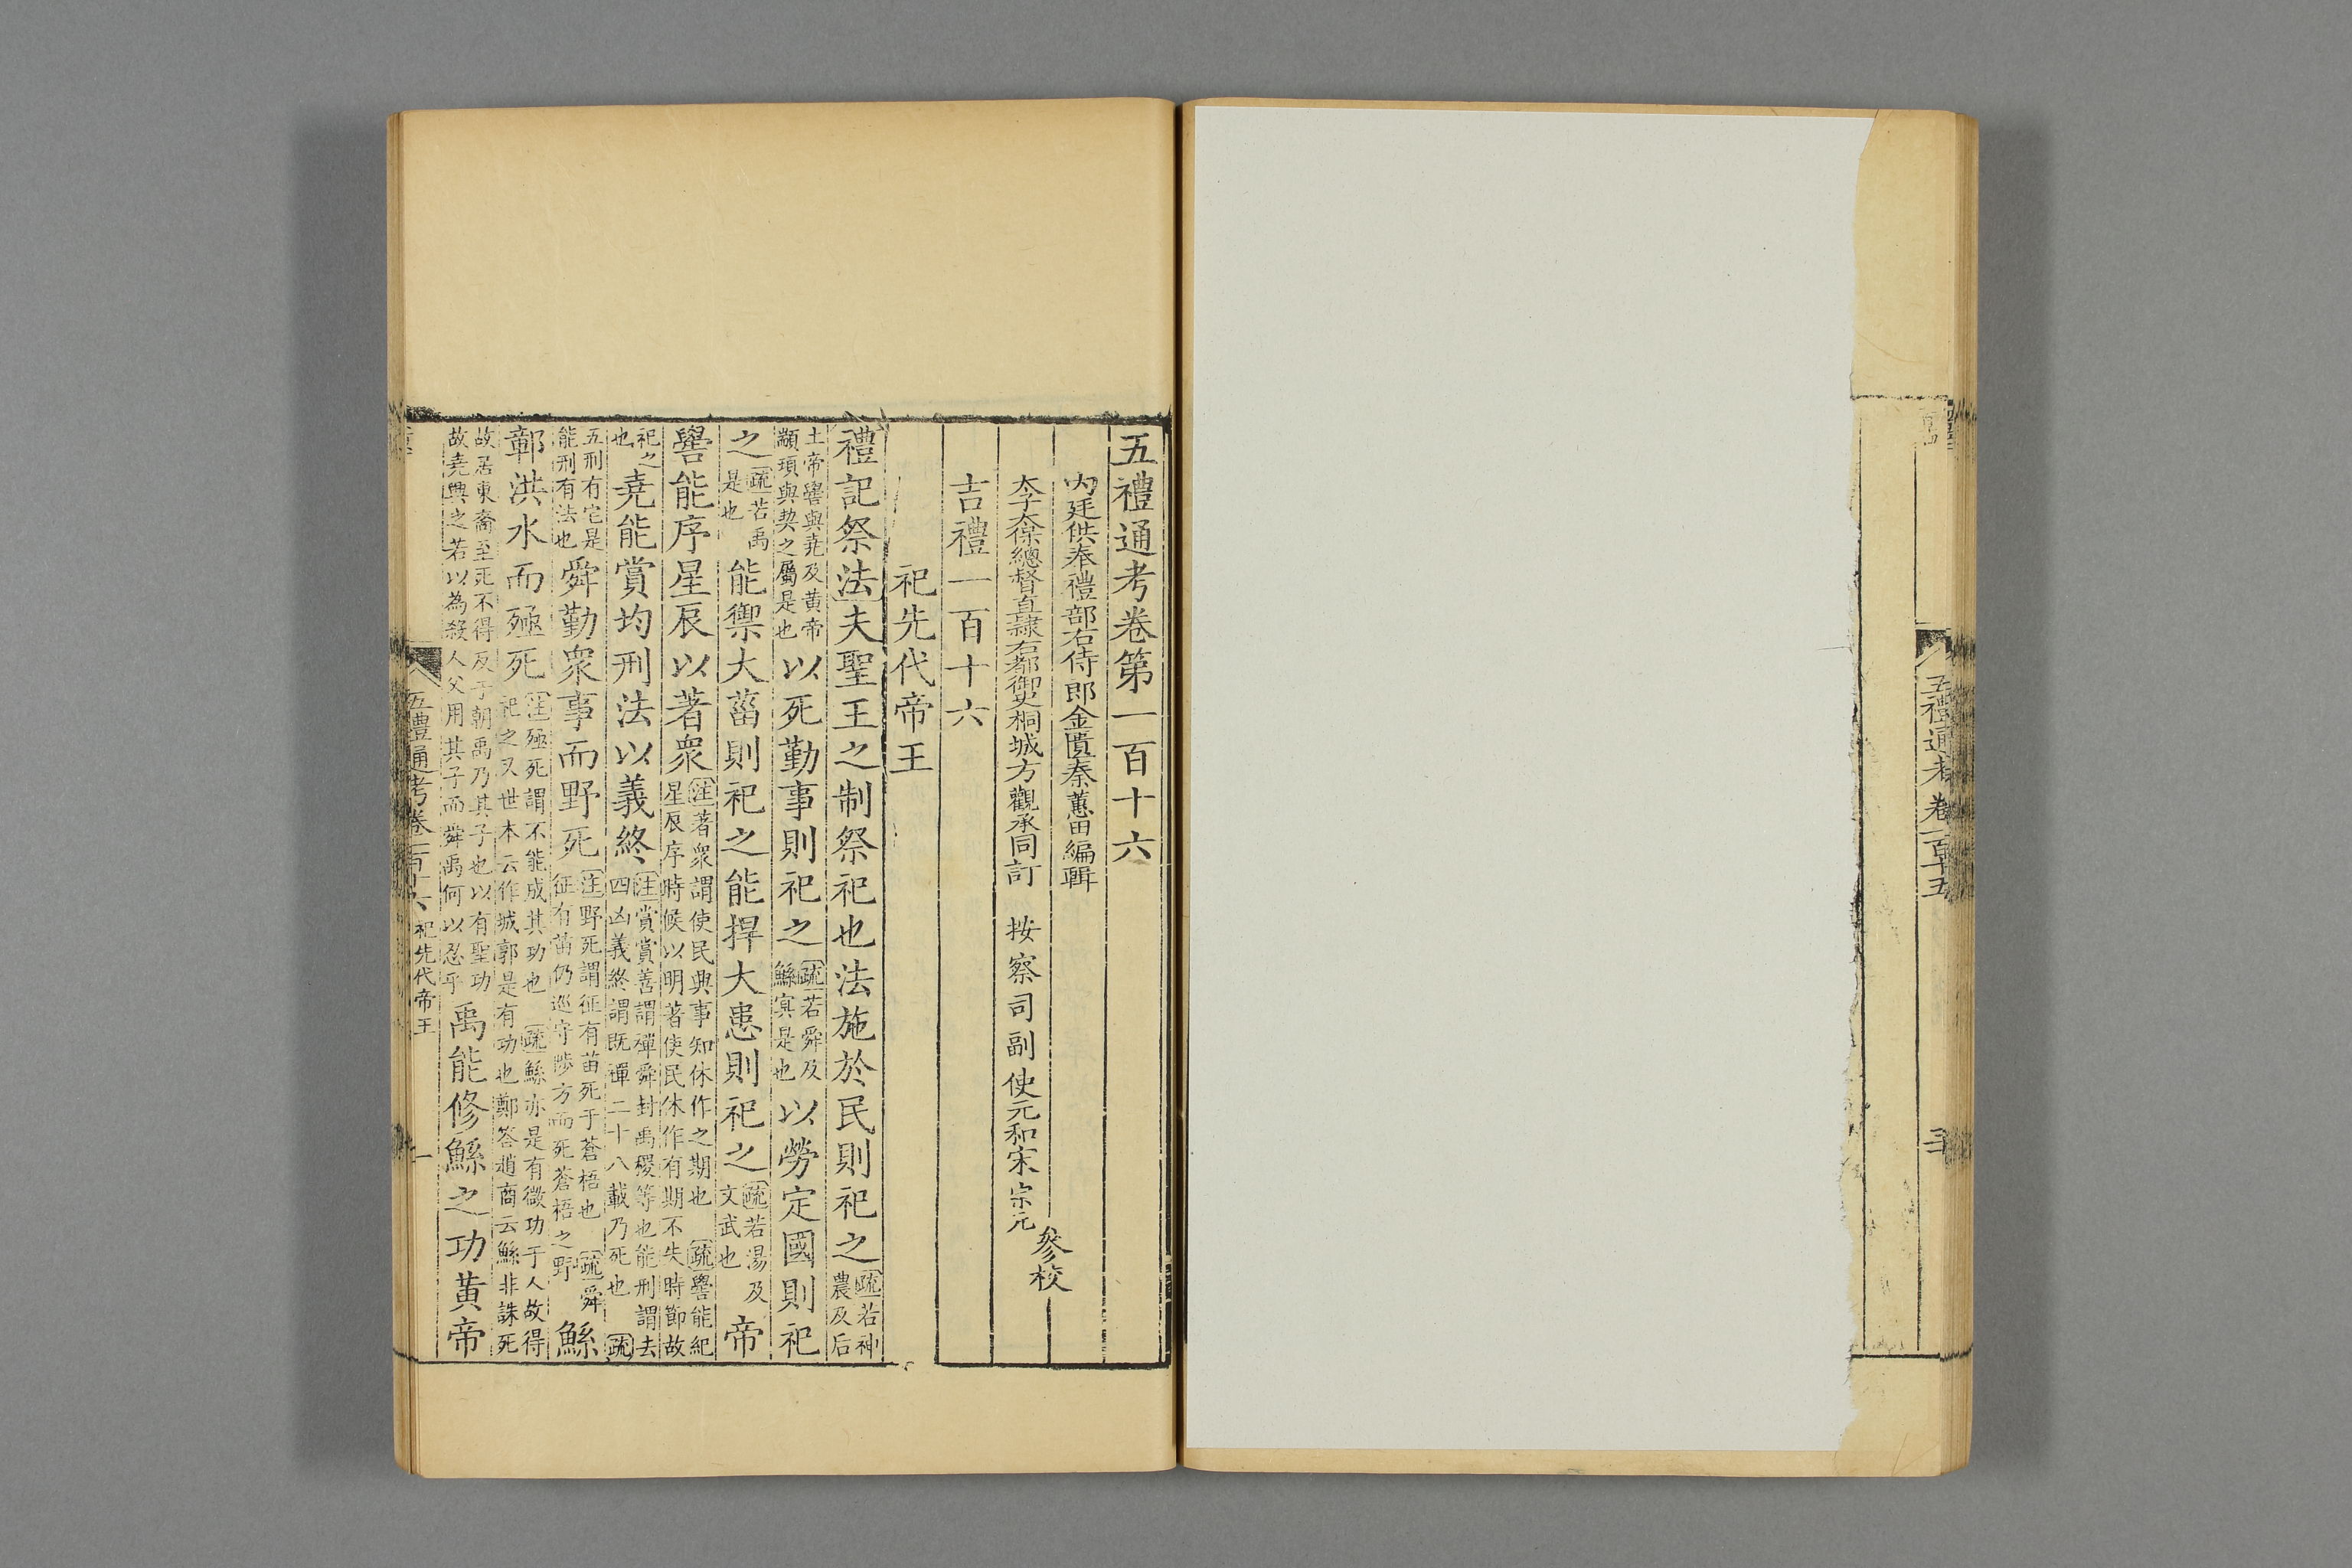 五禮通考卷一百十五
五禮通考卷第一百十六
内廷供奉禮部右侍郎金匱秦蕙田編輯
太子太保總督直隷右都御史桐城方觀承同訂
按察司副使元和宋宗元
參校
吉禮一百十六
祀先代帝王
禮記祭法夫聖王之制祭祀也法施於民則祀之疏若神農及后
土帝嚳與堯及黄帝顓頊與契之屬是也以死勤事則祀之疏若舜及鯀㝠是也以勞定國則祀
之疏若禹是也能禦大菑則祀之能捍大患則祀之疏若湯及文武也帝
嚳能序星辰以著衆注著衆謂使民興事知休作之期也疏嚳能紀星辰序時候以明著使民休作有期不失時節故
祀之也堯能賞均刑法以義終注賞賞善謂禪舜封禹稷等也能刑謂去四凶義終謂既禪二十八載乃死也疏
五刑有宅是能刑有法也舜勤衆事而野死注野死謂征有苗死于蒼梧也疏舜征有苗仍巡守陟方而死蒼梧之野鯀
鄣洪水而殛死注殛死謂不能成其功也疏鯀亦是有微功于人故得祀之又世本云作城郭是有功也鄭答趙商云鯀非誅死
故居東裔至死不得反于朝禹乃其子也以有聖功故堯興之若以為殺人父用其子而舜禹何以忍乎禹能修鯀之功黄帝
五禮通考卷一百十六祀先代帝王 一